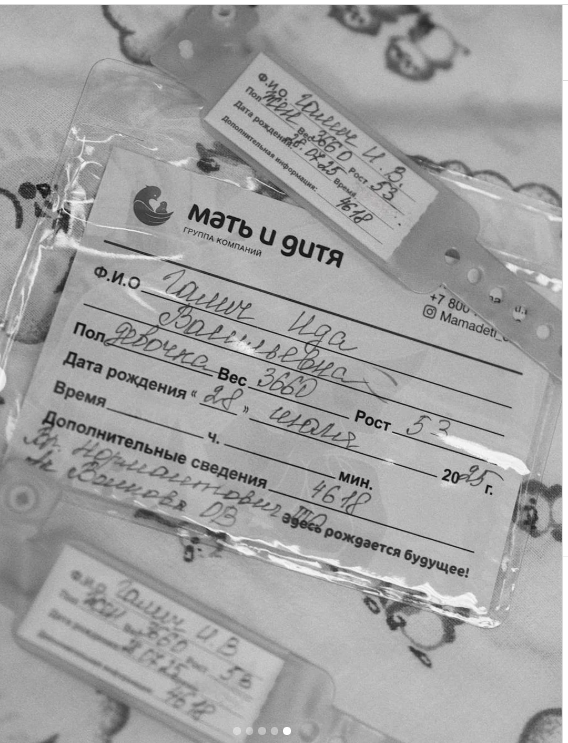 Ф.И.О. Галич И.В.
Пол жен Вес 3660 Рост 53
Дата рождения 28.07.25 Время
Дополнительная информация: 4618
мать и дитя
ГРУППА КОМПАНИЙ
+7 800
Mamadeti_
Ф.И.О Галич Ида
Васильевна
Пол девочка Вес 3660 Рост 53
Дата рождения « 28 » июля 2025 г.
Время ч. мин.
Дополнительные сведения 4618
Вр.
Ак. ОВ
Здесь рождается будущее!
Ф.И.О. Галич И.В
Пол жен Вес 3660 Рост 53
Дата рождения 28.07.25
Дополнительная информация: 4618